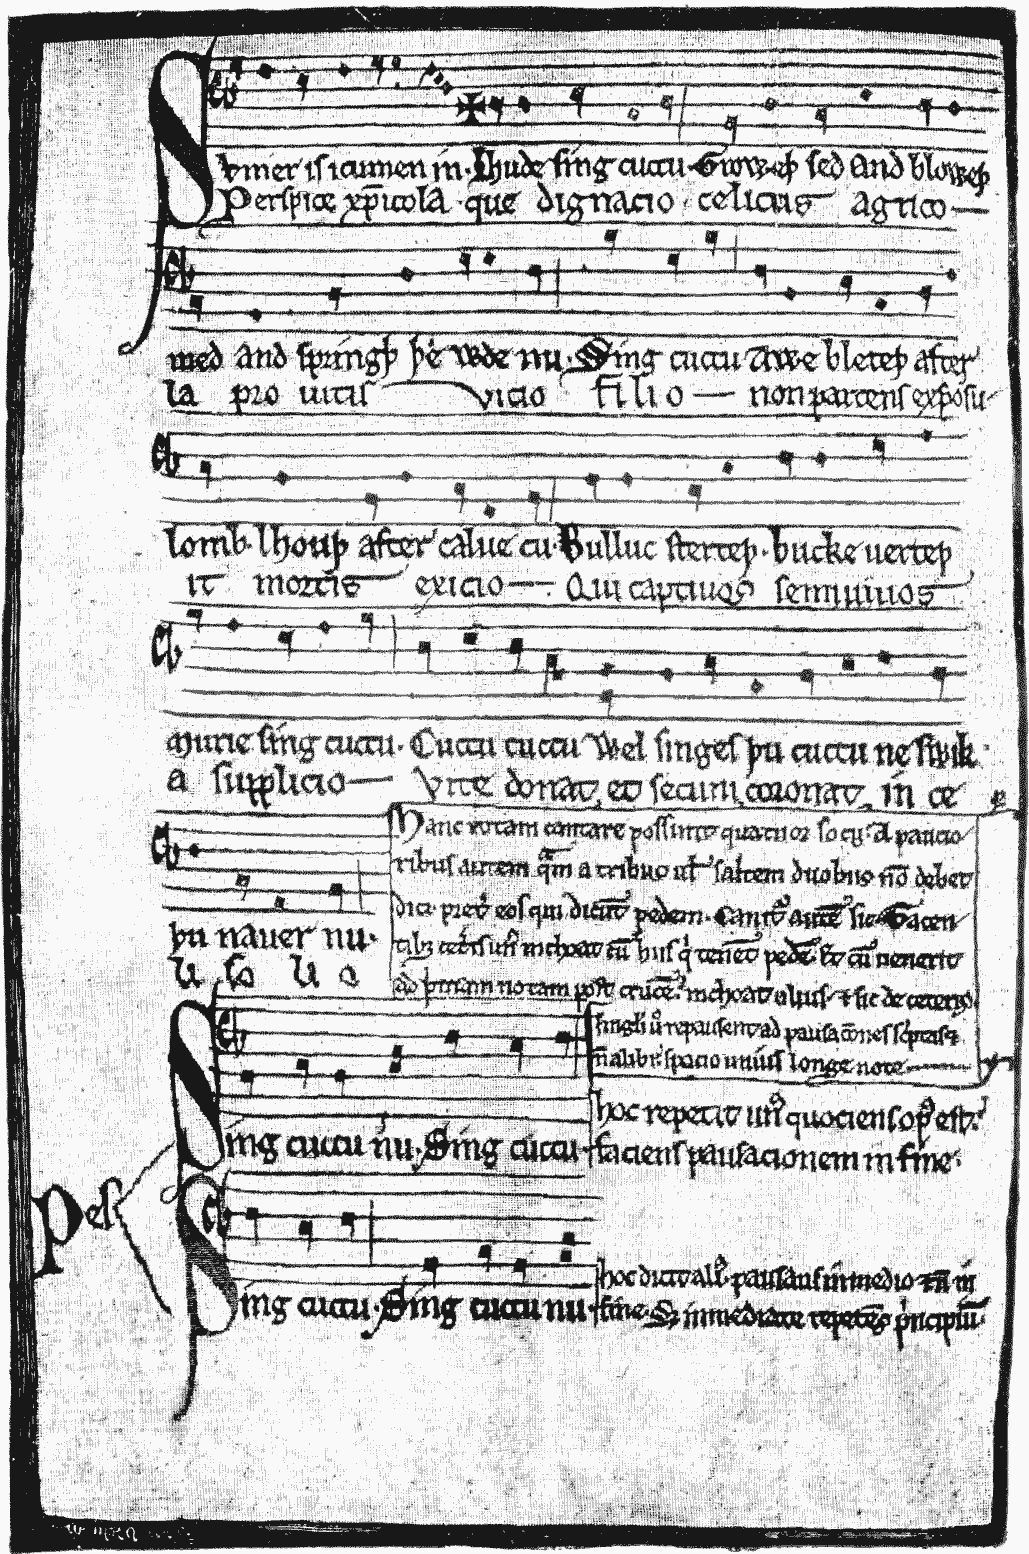 Svmer is icumen in. Lhude sing cuccu. Groweþ sed and bloweþ
Perspice xp̄icola que dignacio celicus agrico
med and springþ þe wde nu. Sing cuccu Awe bleteþ after
la pro uitis vicio filio non parcens exposu
lomb. lhouþ after calue cu. Bulluc sterteþ. bucke uerteþ
it mortis exicio. Qui captiuos semiuiuos
Murie sing cuccu. Cuccu cuccu Wel singes þu cuccu ne swik
a supplicio Vite donat, et secum coronat, in ce
þu nauer nu.
li so li o
Hanc rotam cantare possunt quatuor socij. A paucio
ribus autem qm̄ a tribus ul̄ saltem duobus nō debet
dici. pret̓ eos qui dicūt pedem. Canit̓ autē sic. Tacen
tibȝ cet̓is un̓ inchoat cū hiis q̓ tenēt pedē. Et cū uenerit
ad primam notam post crucē. inchoat alius. & sic de ceteris.
Singuli u̓o repausent ad pausacōnes scriptas &
nō alibi. spacio unius longe note
Sing cuccu nu. Sing cuccu.
hoc repetit un̓ quociens op̓ est.
faciens pausacionem in fine.
Pes
Sing cuccu. Sing cuccu nu
hoc dicit ali̓. pausans in medio & nō in
fine. Sȝ inmediate repetēs p̓ncipiū.